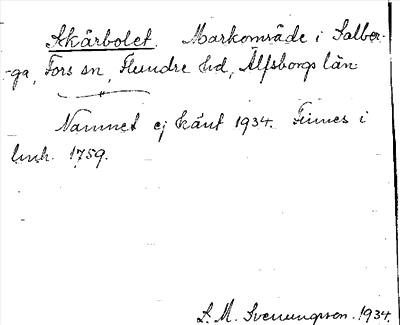 Skårbolet. Markområde i Salber-
-ga, Fors sn, Flundre hd, Älfsborgs län
Namnet ej känt 1934. Finnes i
lmh. 1759.
S. M. Svenungsson. 1934.